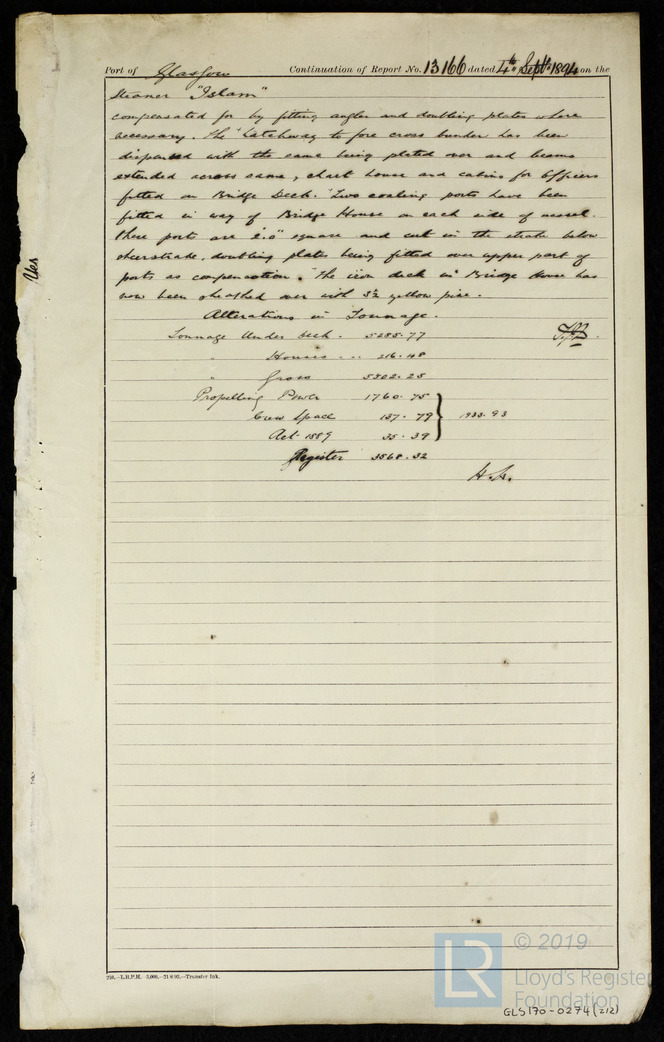 Port of Glasgow Continuation of Report No. 13166 dated 4th Septr 1894 on the
Steamer "Islam"
compensated for by fitting angles and doubling plates where
necessary. The hatchway to fore cross bunker has been
dispensed with the same being plated over and beams
extended across same, chart house and cabins for Officers
fitted on Bridge Deck. Two coaling ports have been
fitted in way of Bridge House on each side of vessel.
These ports are 2'.0" square and cut in the strake below
sheerstrake, doubling plates being fitted over upper part of
ports as compensation. The iron deck in Bridge House has
now been sheathed over with 3½ yellow pine.
Alterations in Tonnage.
Tonnage Under Deck. 5285.77
" Houses - - - 216.48
" Gross 5502.25
Propelling Power 1760.75
Crew Space 137.79 1933.93
Act 1889 35.39
Register 3568.32
H.A.
Yes
210,—L.R.P.H. 5,000,—21/6/93.—Transfer Ink.
© 2019
LR
Lloyd's Register
Foundation
GLS170-0274(212)